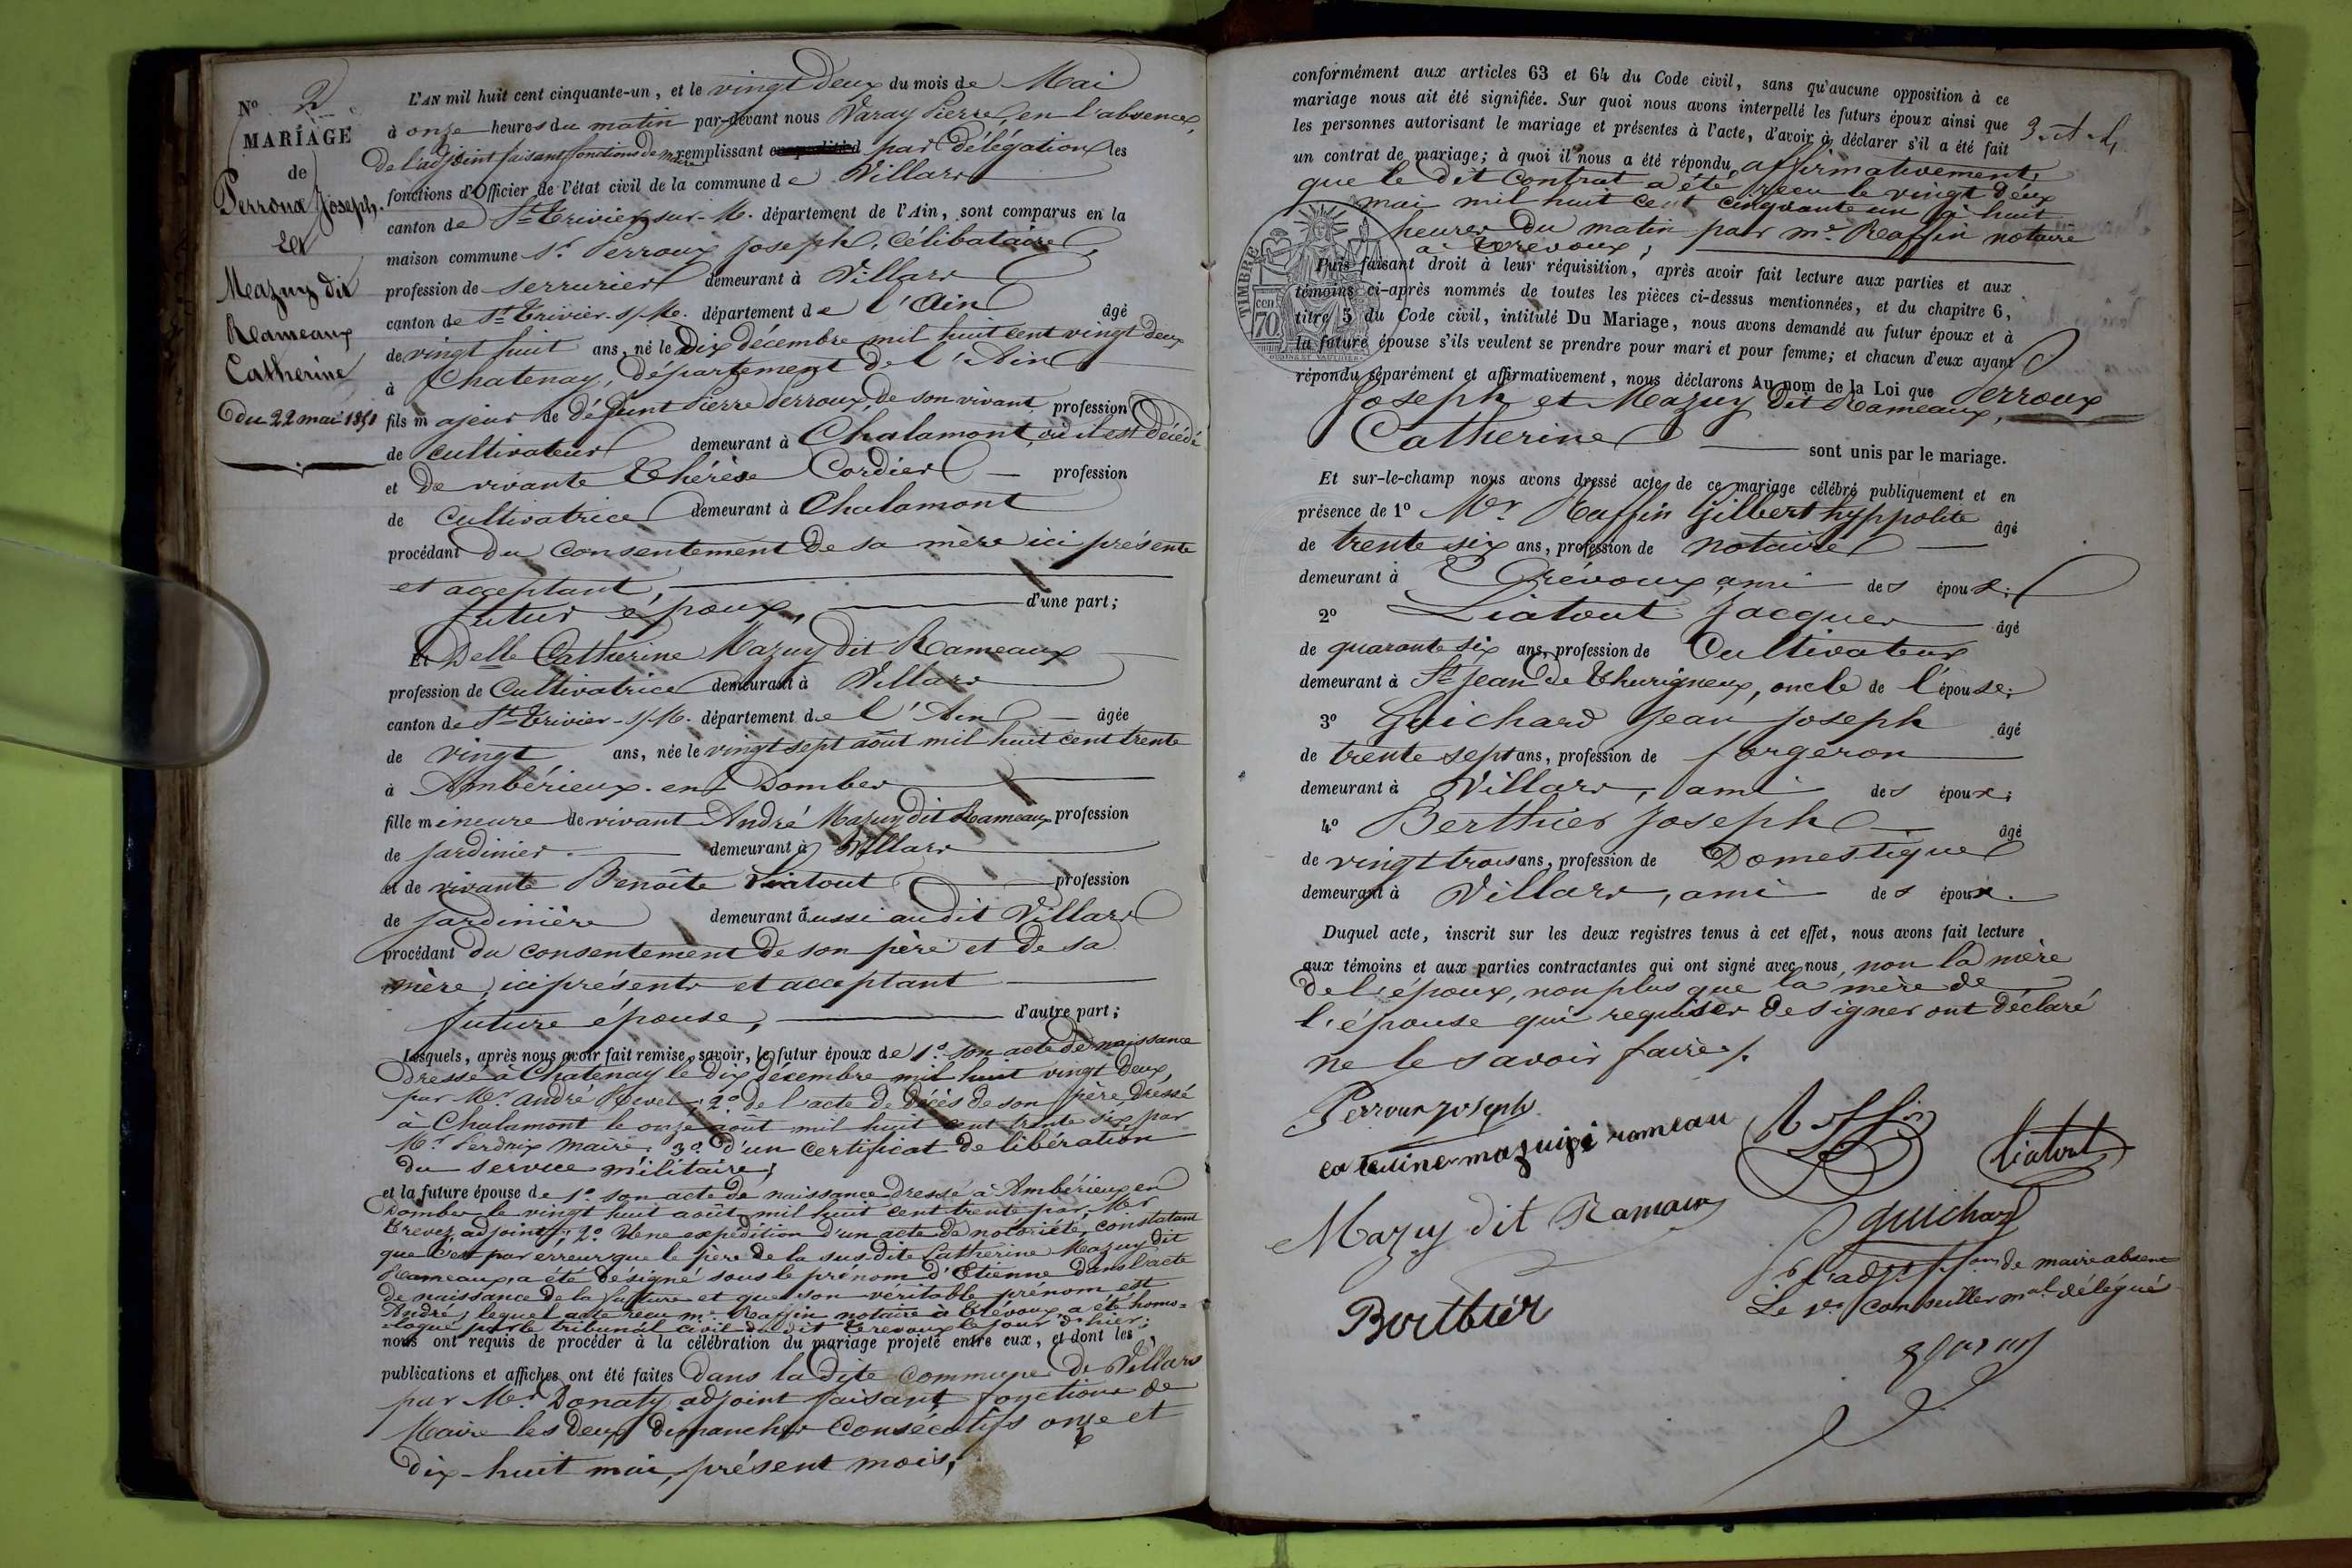 N° 2
MARIAGE
de
Perroux Joseph.
Et
Mazuy dit
Rameaux
Catherine
du 22 mai 1851
L'AN mil huit cent cinquante-un, et le vingt deux du mois de Mai
à onze heures du matin par-devant nous Varay Pierre, en l'absence,
de l'adjoint faisant fonctions de maire remplissant par délégation les
fonctions d'Officier de l'état civil de la commune de Villars
canton de St Trivier-sur-M. département de l'Ain, sont comparus en la
maison commune Sr Perroux Joseph, Célibataire
profession de serrurier demeurant à Villars
canton de St Trivier-s/-M. département de l'Ain âgé
de vingt huit ans, né le Dix décembre mil huit cent vingt deux
à Chatenay, département de l'Ain
fils majeur de défunt Pierre Perroux, de son vivant profession
de cultivateur demeurant à Chalamont, où il est décédé
et de vivante Thérèse Cordier profession
de Cultivatrice demeurant à Chalamont
procédant du consentement de sa mère ici présente
et acceptant,
futur époux, d'une part;
Et Delle Catherine Mazuy dit Rameaux
profession de Cultivatrice demeurant à Villars
canton de St Trivier-s/-M. département de l'Ain âgée
de vingt ans, née le vingt sept août mil huit cent trente
à Ambérieux-en-Dombes
fille mineure de vivant André Mazuy dit Rameaux profession
de jardinier. demeurant à Villars
et de vivante Benoîte Liatout profession
de jardinière demeurant aussi au dit Villars
procédant du consentement de son père et de sa
mère, ici présents et acceptant
future épouse, d'autre part;
Lesquels, après nous avoir fait remise, savoir, le futur époux de 1° son acte de naissance
dressé à Chatenay le dix décembre mil huit vingt deux,
par Mr André ; 2° de l'acte de décès de son père, dressé
à Chalamont le onze août mil huit cent trente six, par
Mr Perdrix maire; 3° d'un certificat de libération
du service militaire;
et la future épouse de 1° son acte de naissance dressé à Ambérieux en
Dombes le vingt huit août mil huit cent trente par Mr
Trevez, adjoint; 2° Une expédition d'un acte de notoriété, constatant
que c'est par erreur que le père de la sus-dite Catherine Mazuy dit
Rameaux, a été désigné sous le prénom d'Etienne dans l'acte
de naissance de la future et que son véritable prénom est
André; lequel acte reçu me Raffin notaire à Trévoux, a été homo=
logué par le tribunal civil du dit Trévoux le jour d'hier;
nous ont requis de procéder à la célébration du mariage projeté entre eux, et dont les
publications et affiches ont été faites Dans la dite commune de Villars
par Mr Donaty adjoint faisant fonctions de
Maire les deux dimanches consécutifs onze et
dix-huit mai, présent mois,
conformément aux articles 63 et 64 du Code civil, sans qu'aucune opposition à ce
mariage nous ait été signifiée. Sur quoi nous avons interpellé les futurs époux ainsi que
les personnes autorisant le mariage et présentes à l'acte, d'avoir à déclarer s'il a été fait
un contrat de mariage; à quoi il nous a été répondu affirmativement,
que le dit Contrat a été reçu le vingt deux
mai mil huit cent cinquante un à huit
heures du matin par me Raffin notaire
à Trévoux;
TIMBRE
cen
70
Puis faisant droit à leur réquisition, après avoir fait lecture aux parties et aux
témoins ci-après nommés de toutes les pièces ci-dessus mentionnées, et du chapitre 6,
titre 5 du Code civil, intitulé Du Mariage, nous avons demandé au futur époux et à
la future épouse s'ils veulent se prendre pour mari et pour femme; et chacun d'eux ayant
répondu séparément et affirmativement, nous déclarons Au nom de la Loi que Perroux
Joseph et Mazuy Dit Rameaux,
Catherine
sont unis par le mariage.
Et sur-le-champ nous avons dressé acte de ce mariage célébré publiquement et en
présence de 1° Mr Raffin Gilbert hyppolite âgé
de trente six ans, profession de notaire
demeurant à Trévoux, ami des époux;
2° Liatout Jacques âgé
de quarante six ans, profession de Cultivateur
demeurant à St Jean de Thurigneux, oncle de l'épouse;
3° Guichard Jean Joseph âgé
de trente sept ans, profession de forgeron
demeurant à Villars, ami des époux;
4° Berthier Joseph âgé
de vingt trois ans, profession de Domestique
demeurant à Villars, ami des époux.
Duquel acte, inscrit sur les deux registres tenus à cet effet, nous avons fait lecture
aux témoins et aux parties contractantes qui ont signé avec nous, non la mère
de l'époux, non plus que la mère de
l'épouse qui requises de signer ont déclaré
ne le savoir faire.
Perroux joseph
Raffin
Liatout
Mazuy dit Ramaux
guichard
Berthier
pr l'adjt f. fons de maire absent
Le 1er Conseiller mal délégué
Varay